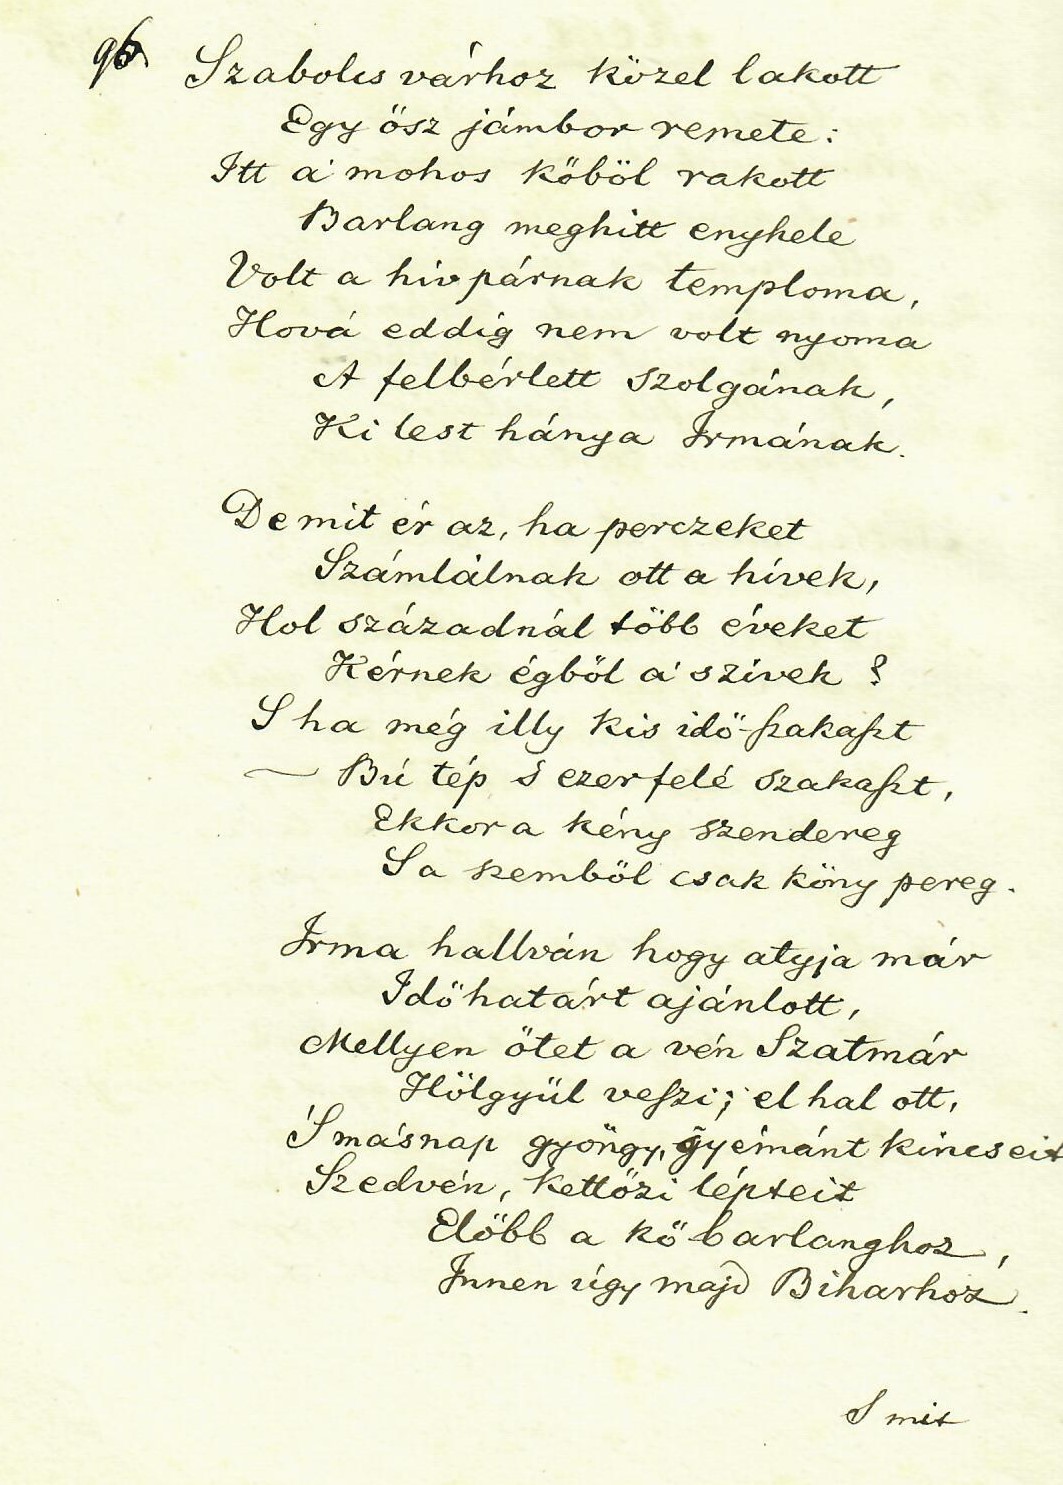 96.
Szabolcs várhoz közel lakott
Egy ősz jámbor remete:
Itt a' mohos kőböl rakott
Barlang meghitt enyhele
Volt a hív párnak temploma,
Hová eddig nem volt nyoma
A felbérlett szolgának,
Ki lest hánya Irmának.
De mit ér az, ha perczeket
Számlálnak ott a hívek,
Hol századnál több éveket
Kérnek égből a' szívek?
S ha még illy kis idő-szakaszt
— Bú tép s ezerfelé szakaszt,
Ekkor a kény szendereg
S a szemből csak köny pereg.
Irma hallván hogy atyja már
Időhatárt ajánlott,
Mellyen őtet a vén Szatmár
Hölgyül veszi; el hal ott,
'S másnap gyöngy, gyémánt kincseit
Szedvén, kettőzi lépteit
Előbb a kő barlanghoz,
Innen úgy majd Biharhoz.
S mit